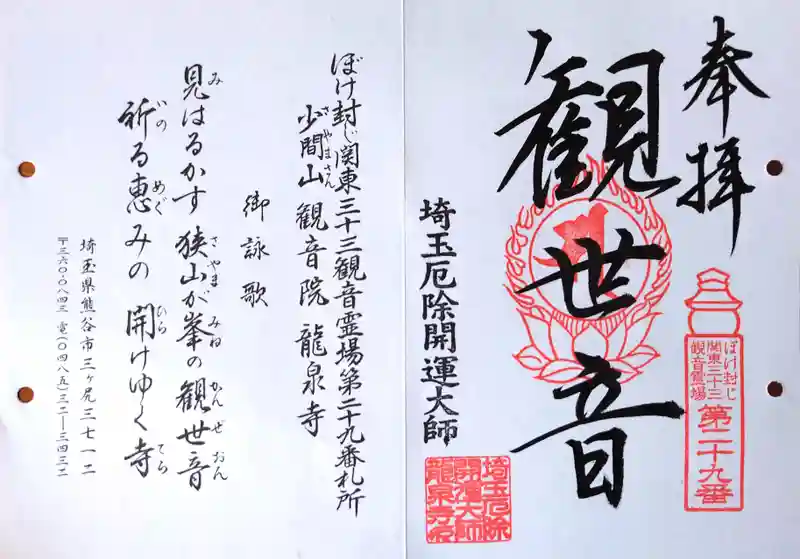 奉拝
ぼけ封じ
関東三十三
観音霊場
第二十九番
観世音
埼玉厄除開運大師
埼玉厄除
開運大師
龍泉寺
ぼけ封じ関東三十三観音霊場第二十九番札所
少間山 観音院 龍泉寺
さやまさん
御詠歌
見はるかす 狭山が峯の 観世音
み さやま みね かんぜおん
祈る恵みの 開けゆく寺
いの めぐ ひら てら
埼玉県熊谷市三ヶ尻三七一二
〒三六〇-〇八四三 電(〇四八五)三二ー三四三二